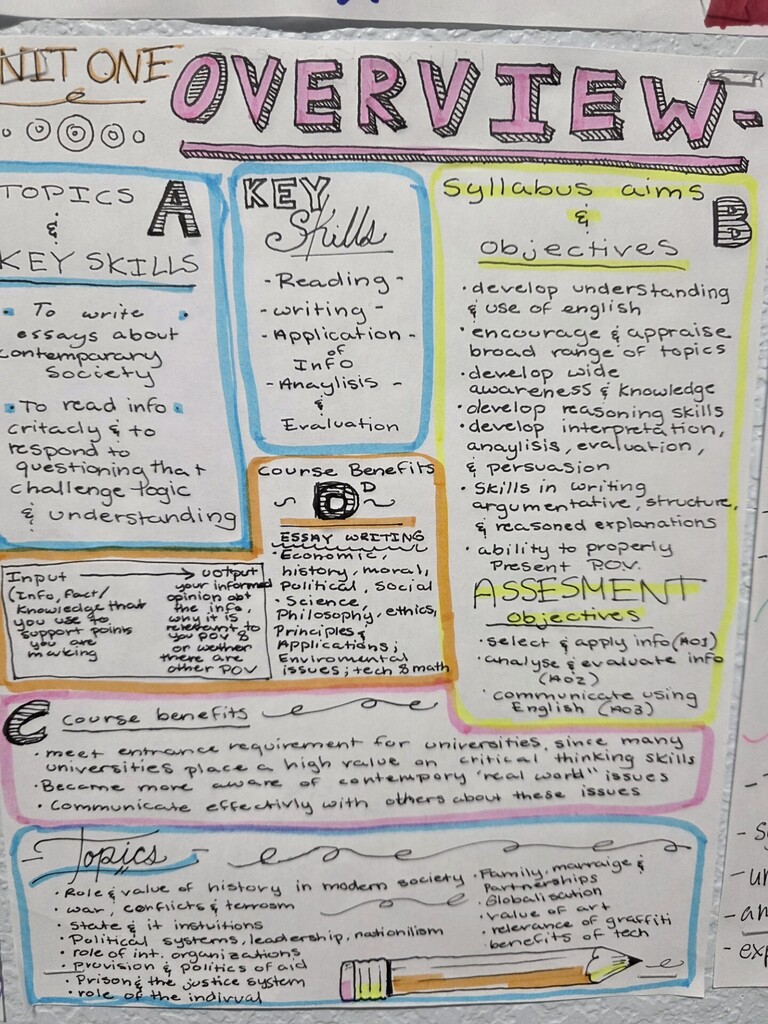 NIT ONE
OVERVIEW-
TOPICS
&
KEY SKILLS
A
• To write •
essays about
contemparary
Society
• To read info •
critacly & to
respond to
questioning that
challenge logic
& understanding
KEY
Skills
- Reading -
- writing -
- Application -
of
Info
- Anaylisis -
&
Evaluation
Syllabus aims
&
objectives
B
• develop understanding
& use of english
• encourage & appraise
broad range of topics
• develop wide
awareness & knowledge
• develop reasoning skills
• develop interpretation,
anaylisis, evaluation,
& persuasion
• Skills in writing
argumentative, structure,
& reasoned explanations
• ability to properly
Present P.O.V.
ASSESMENT
objectives
• select & apply info (AO1)
• analyse & evaluate info
(AO2)
• communicate using
English (AO3)
Course Benefits
D
D
ESSAY WRITING
• Economic,
history, moral,
Political, Social
• Science,
Philosophy, ethics,
Principles &
Applications;
Enviromental
issues; tech & math
Input
(Info, fact/
knowledge that
you use to
support points
you are
making
output
your informed
opinion abt
the info,
why it is
relevant to
you POV &
or wether
there are
other POV
C
course benefits
• meet entrance requirement for universities, since many
universities place a high value on critical thinking skills
• Become more aware of contempory "real world" issues
• Communicate effectivly with others about these issues
- Topics -
• Role & value of history in modern society
• war, conflicts & terrosm
• state & it instuitions
• Political systems, leadership, nationilism
• role of int. organizations
• Provision & Politics of aid
• Prison & the justice system
• role of the indivual
• Family, marraige &
Partnerships
• Globalisation
• value of art
• relevance of graffiti
• benefits of tech
- an
- exp